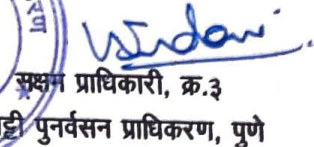 रण
सक्षम प्राधिकारी, क्र.३
ट्टी पुनर्वसन प्राधिकरण, पुणे